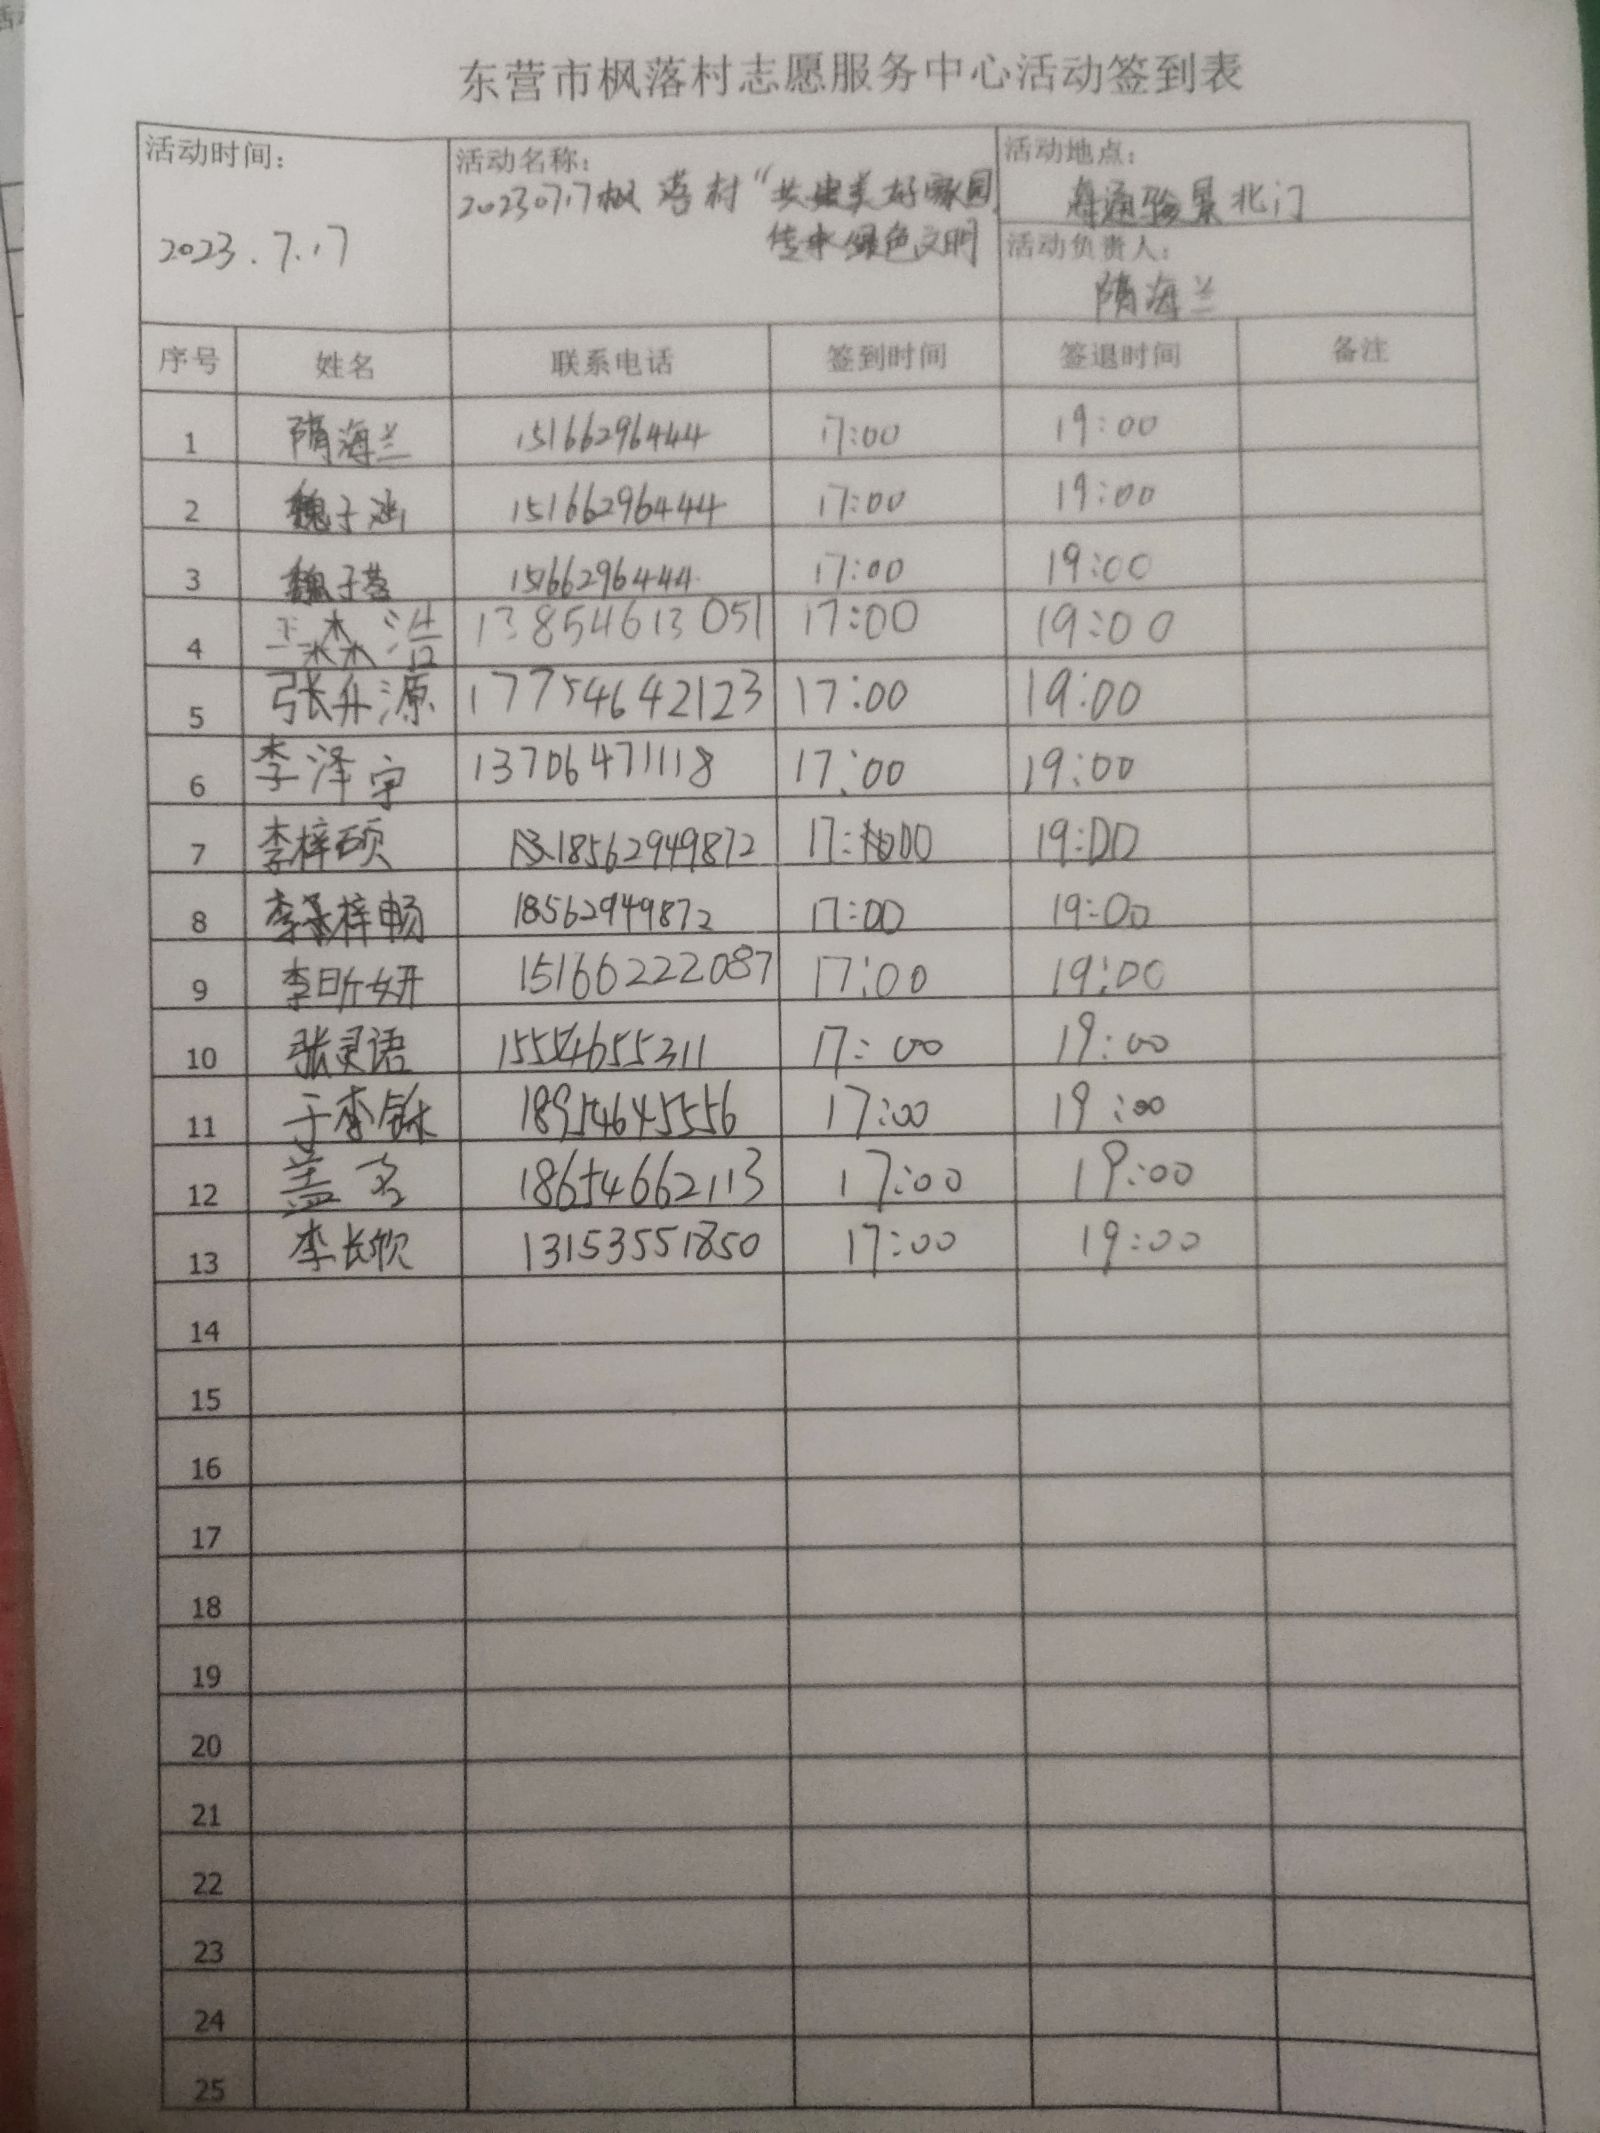 东营市枫落村志愿服务中心活动签到表
活动时间： 活动名称： 活动地点：
2023.7.17 20230717枫落村“共建美好家园 海通骏景北门
传承绿色文明 活动负责人：
隋海兰
序号 姓名 联系电话 签到时间 签退时间 备注
1 隋海兰 15166296444 17:00 19:00
2 魏子涵 15166296444 17:00 19:00
3 魏子 15166296444 17:00 19:00
4 王淼浩 13854613051 17:00 19:00
5 张升源 17754642123 17:00 19:00
6 李泽宇 13706471118 17:00 19:00
7 李梓硕 18562949872 17:00 19:00
8 李梓畅 18562949872 17:00 19:00
9 李昕妍 15166222087 17:00 19:00
10 张灵语 15554655311 17:00 19:00
11 于李 18954645556 17:00 19:00
12 盖 18654662113 17:00 19:00
13 李长欣 13153551850 17:00 19:00
14
15
16
17
18
19
20
21
22
23
24
25